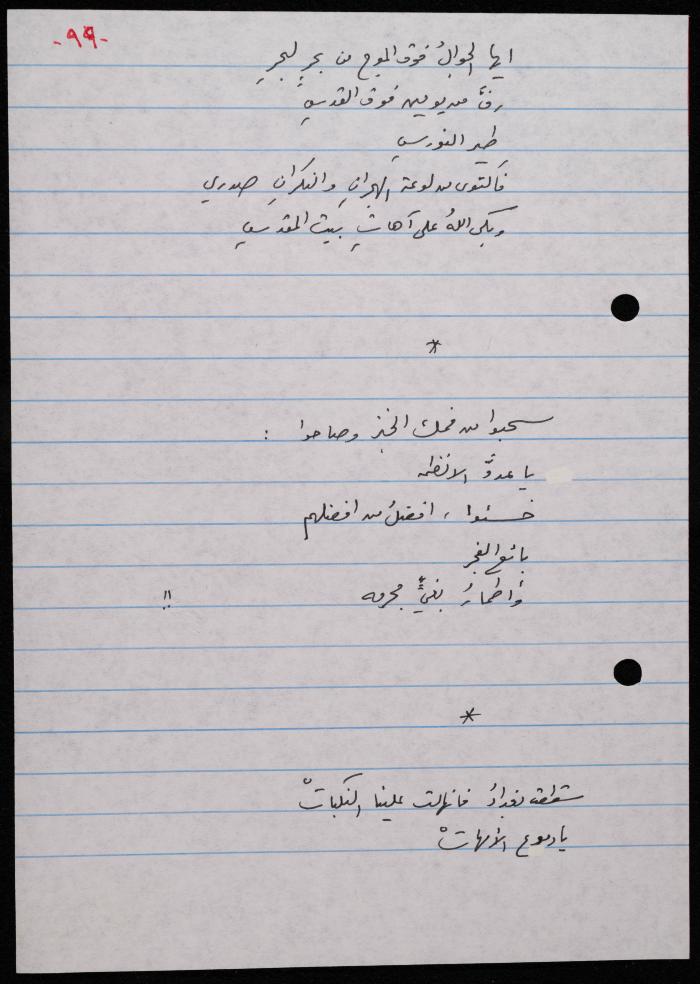 -٩٩-
ايها الجوابُ فوق الموج من بحرٍ لبحرِ
رفَّ من يومين فوق القدسِ
طير النورسِ
فالتوى من لوعة الهجرانِ والنكرانِ صدري
وبكى اللهُ على آهاتِ بيت المقدسِ
*
سحبوا من فمك الخبز وصاحوا :
يا عدوَّ الانظمه
خسئوا ، افضلُ من افضلهم
بائع الفجر
وأطمارُ بغيٍّ مجرمه !!
*
سقطت بغدادُ فانهالت علينا النكباتْ
يا دموع الأمهاتْ